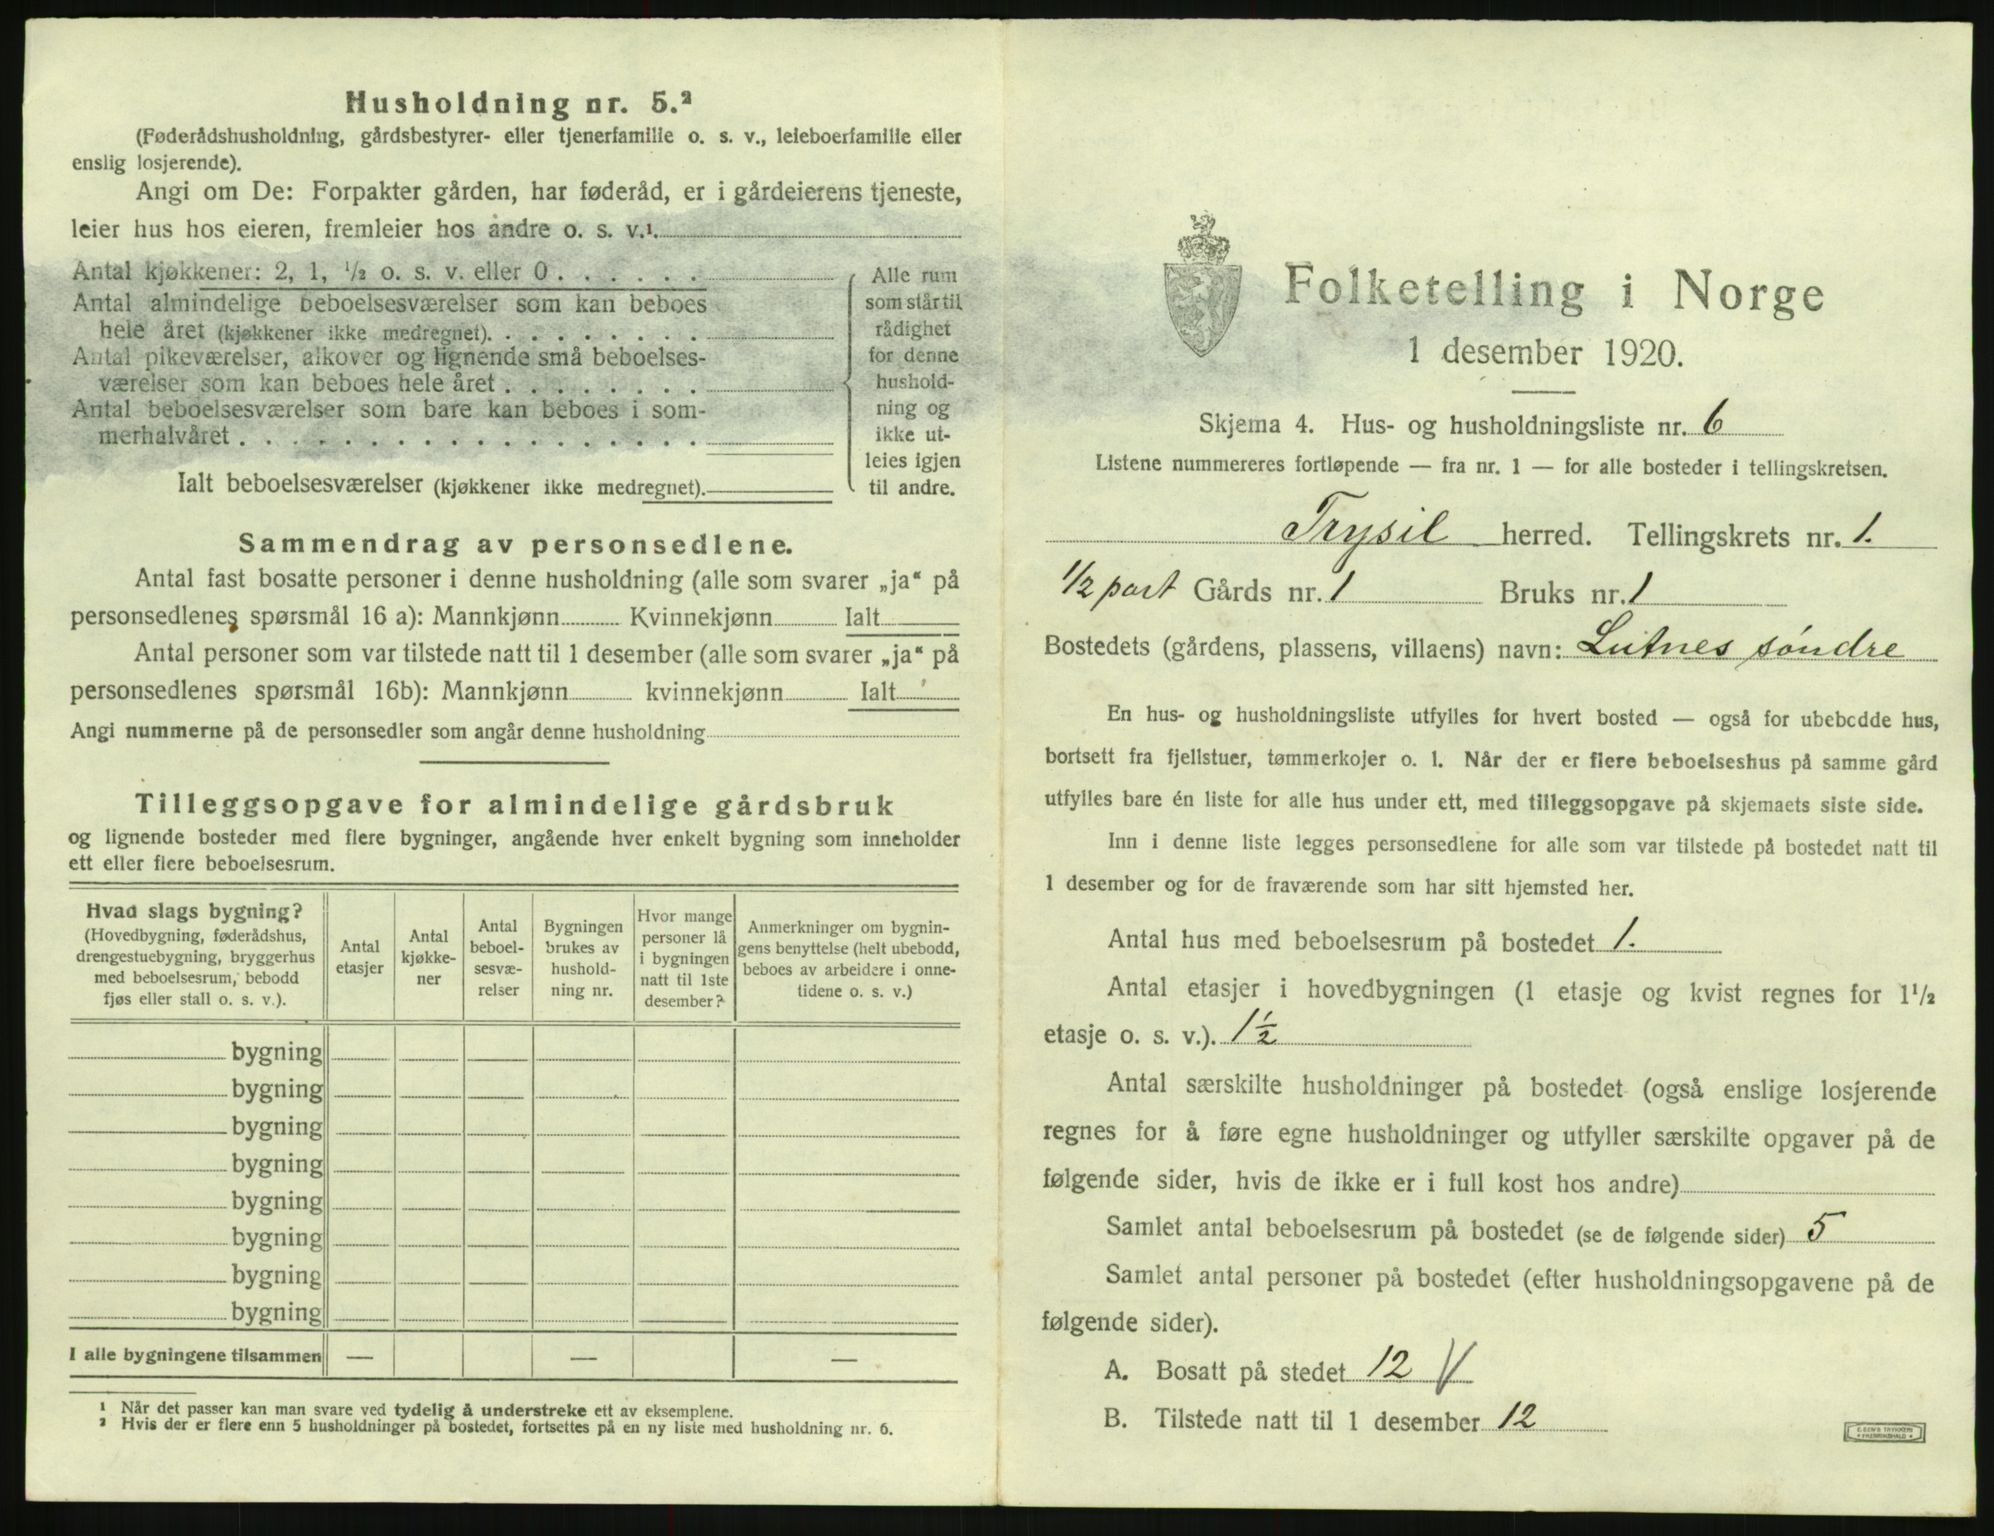 Husholdning nr. 5.²
(Føderådshusholdning, gårdsbestyrer- eller tjenerfamilie o. s. v., leieboerfamilie eller
enslig losjerende).
Angi om De: Forpakter gården, har føderåd, er i gårdeierens tjeneste,
leier hus hos eieren, fremleier hos andre o. s. v.¹.
Antal kjøkkener: 2, 1, ½ o. s. v. eller 0 . . . . . .
Antal almindelige beboelsesværelser som kan beboes
hele året (kjøkkener ikke medregnet). . . . . . . . .
Antal pikeværelser, alkover og lignende små beboelses-
værelser som kan beboes hele året . . . . . . . .
Antal beboelsesværelser som bare kan beboes i som-
merhalvåret . . . . . . . . . . . . . . . . . . .
Ialt beboelsesværelser (kjøkkener ikke medregnet).
Alle rum
som står til
rådighet
for denne
hushold-
ning og
ikke ut-
leies igjen
til andre.
Sammendrag av personsedlene.
Antal fast bosatte personer i denne husholdning (alle som svarer „ja“ på
personsedlenes spørsmål 16 a): Mannkjønn Kvinnekjønn Ialt
Antal personer som var tilstede natt til 1 desember (alle som svarer „ja“ på
personsedlenes spørsmål 16b): Mannkjønn kvinnekjønn Ialt
Angi nummerne på de personsedler som angår denne husholdning
Tilleggsopgave for almindelige gårdsbruk
og lignende bosteder med flere bygninger, angående hver enkelt bygning som inneholder
ett eller flere beboelsesrum.
Hvad slags bygning?
(Hovedbygning, føderådshus,
drengestuebygning, bryggerhus
med beboelsesrum, bebodd
fjøs eller stall o. s. v.).
Antal
etasjer
Antal
kjøkke-
ner
Antal
beboel-
sesvæ-
relser
Bygningen
brukes av
hushold-
ning nr.
Hvor mange
personer lå
i bygningen
natt til 1ste
desember?
Anmerkninger om bygnin-
gens benyttelse (helt ubebodd,
beboes av arbeidere i onne-
tidene o. s. v.)
bygning
bygning
bygning
bygning
bygning
bygning
bygning
bygning
I alle bygningene tilsammen — — —
¹ Når det passer kan man svare ved tydelig å understreke ett av eksemplene.
² Hvis der er flere enn 5 husholdninger på bostedet, fortsettes på en ny liste med husholdning nr. 6.
Folketelling i Norge
1 desember 1920.
Skjema 4. Hus- og husholdningsliste nr. 6
Listene nummereres fortløpende — fra nr. 1 — for alle bosteder i tellingskretsen.
Trysil herred. Tellingskrets nr. 1.
1/2 part Gårds nr. 1 Bruks nr. 1
Bostedets (gårdens, plassens, villaens) navn: Lutnes søndre
En hus- og husholdningsliste utfylles for hvert bosted — også for ubebodde hus,
bortsett fra fjellstuer, tømmerkojer o. l. Når der er flere beboelseshus på samme gård
utfylles bare én liste for alle hus under ett, med tilleggsopgave på skjemaets siste side.
Inn i denne liste legges personsedlene for alle som var tilstede på bostedet natt til
1 desember og for de fraværende som har sitt hjemsted her.
Antal hus med beboelsesrum på bostedet 1.
Antal etasjer i hovedbygningen (1 etasje og kvist regnes for 1½
etasje o. s. v.). 1½
Antal særskilte husholdninger på bostedet (også enslige losjerende
regnes for å føre egne husholdninger og utfyller særskilte opgaver på de
følgende sider, hvis de ikke er i full kost hos andre)
Samlet antal beboelsesrum på bostedet (se de følgende sider) 5
Samlet antal personer på bostedet (efter husholdningsopgavene på de
følgende sider).
A. Bosatt på stedet 12 V
B. Tilstede natt til 1 desember 12